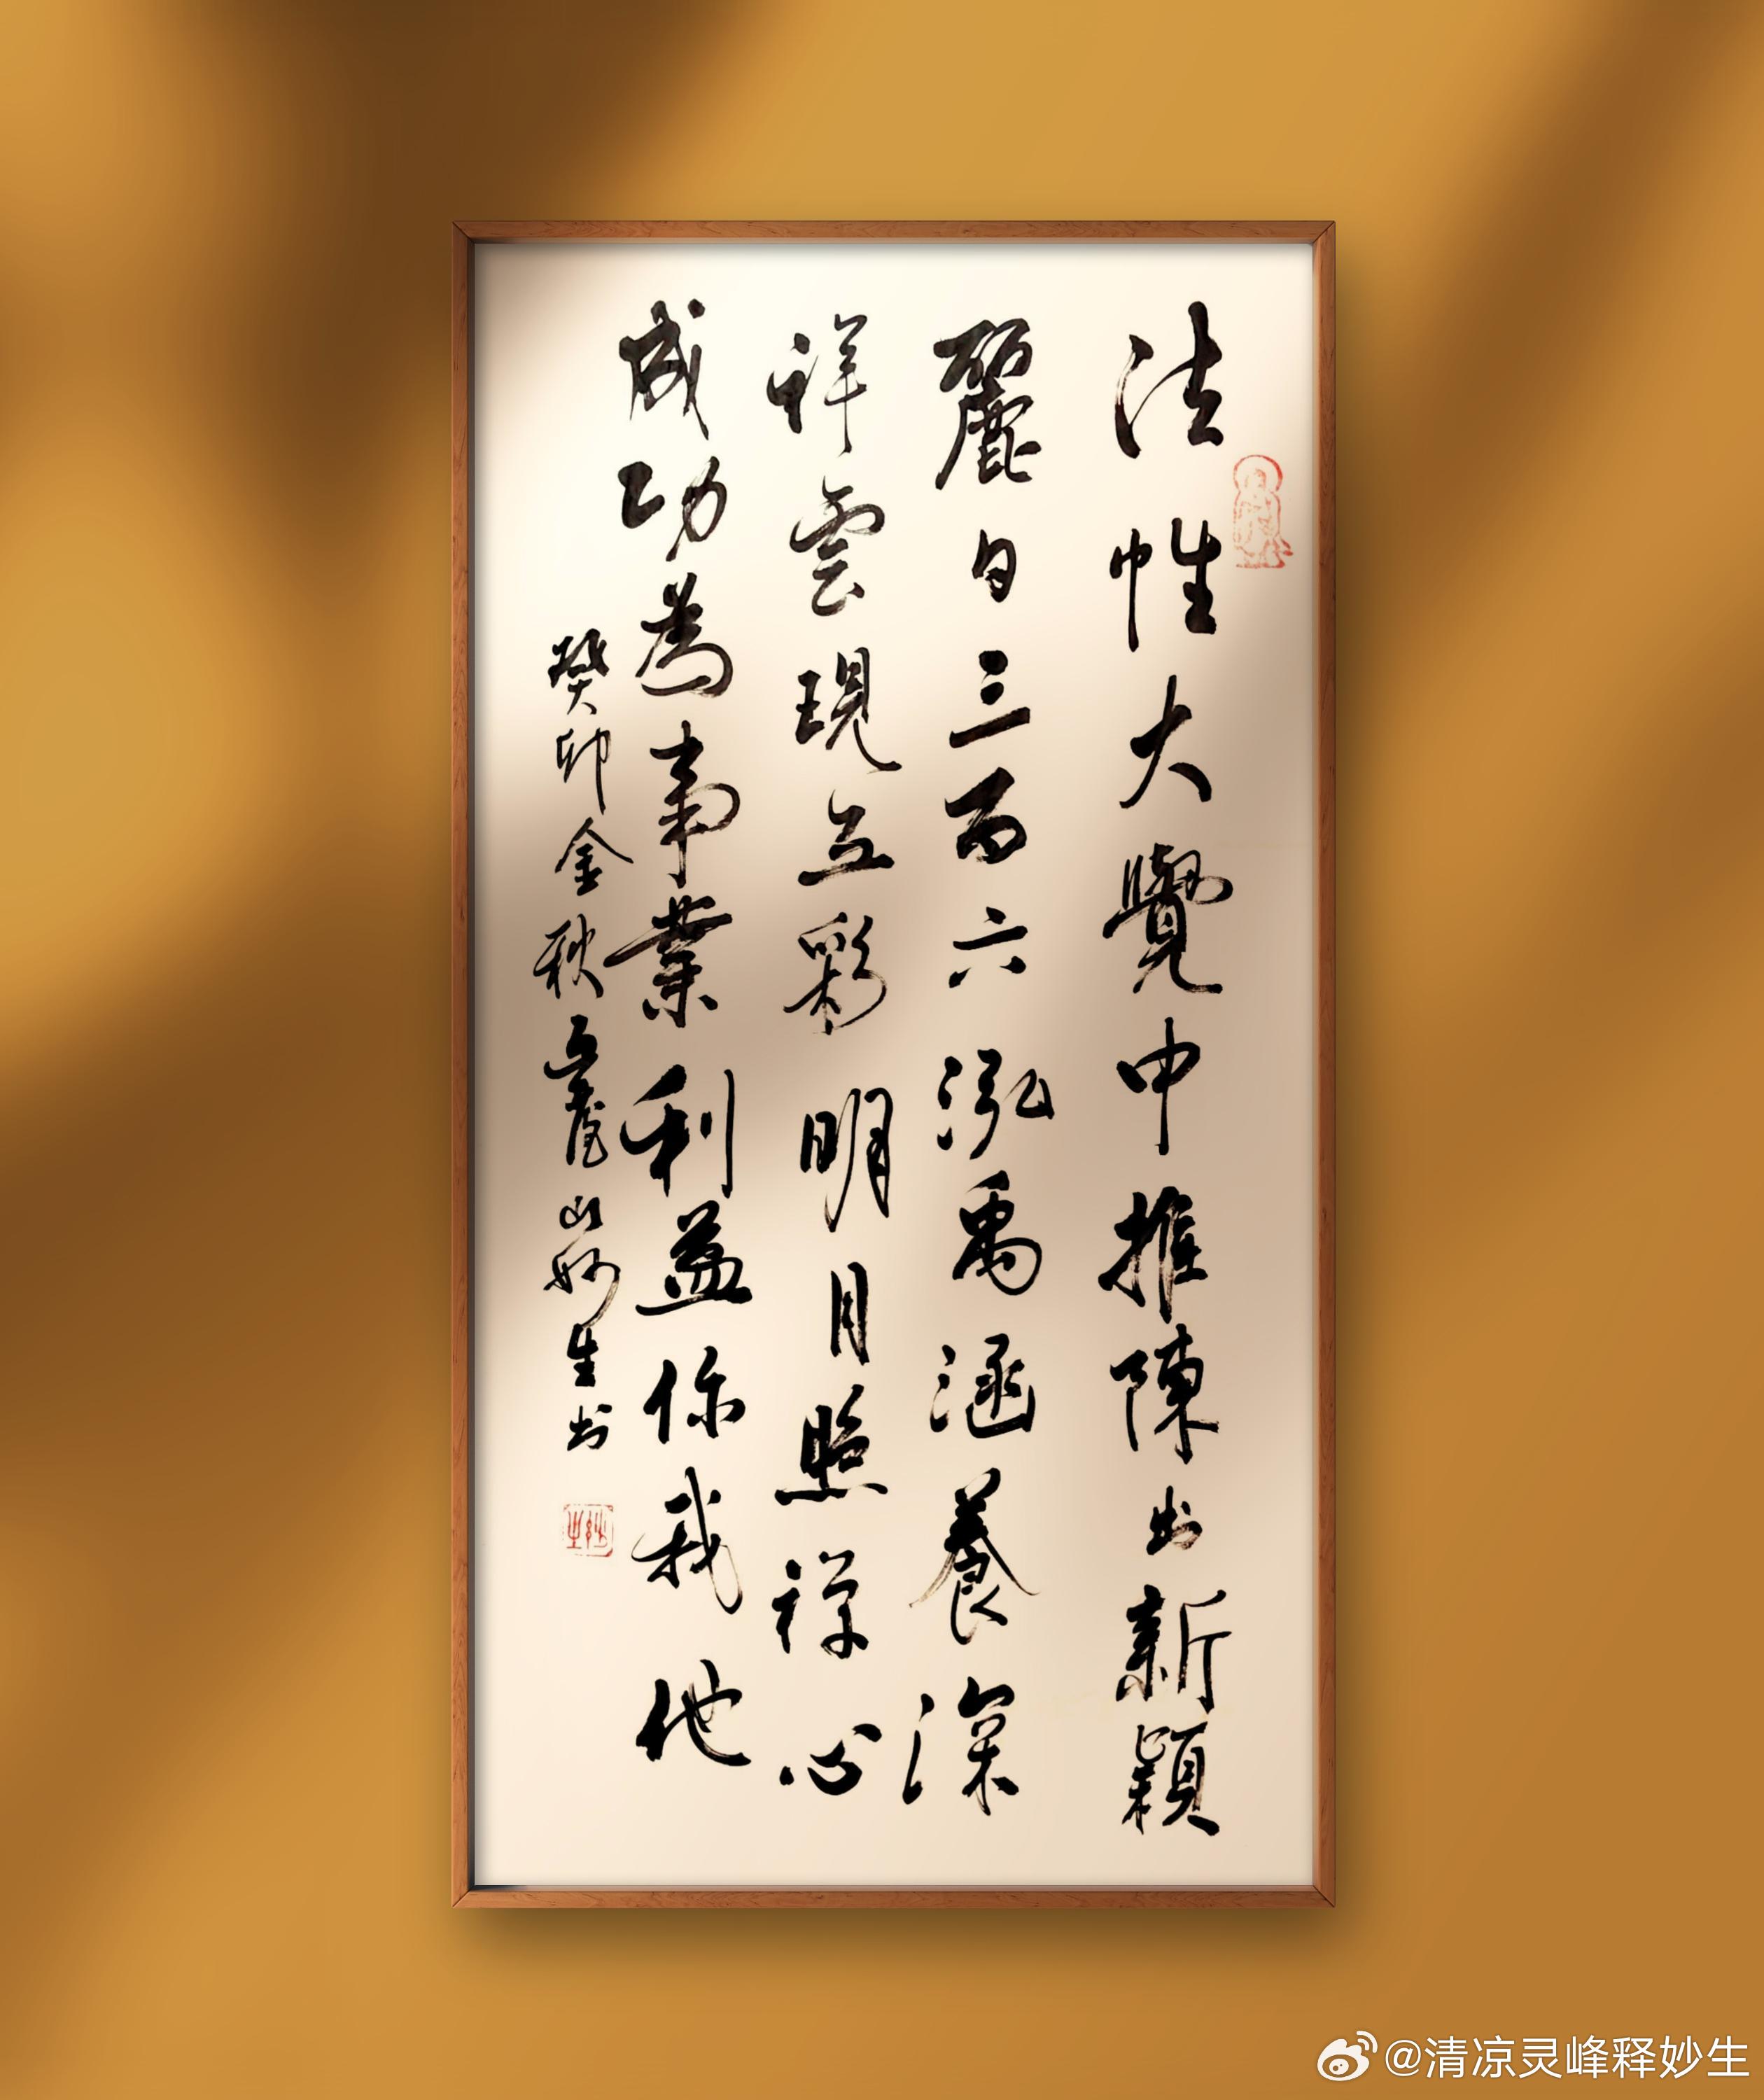 法性大覺中推陳出新穎
麗日三百六泓禹涵養深
祥雲現五彩明月照禅心
成功為事業利益你我他
癸卯金秋五臺山妙生书
妙生
@清凉灵峰释妙生